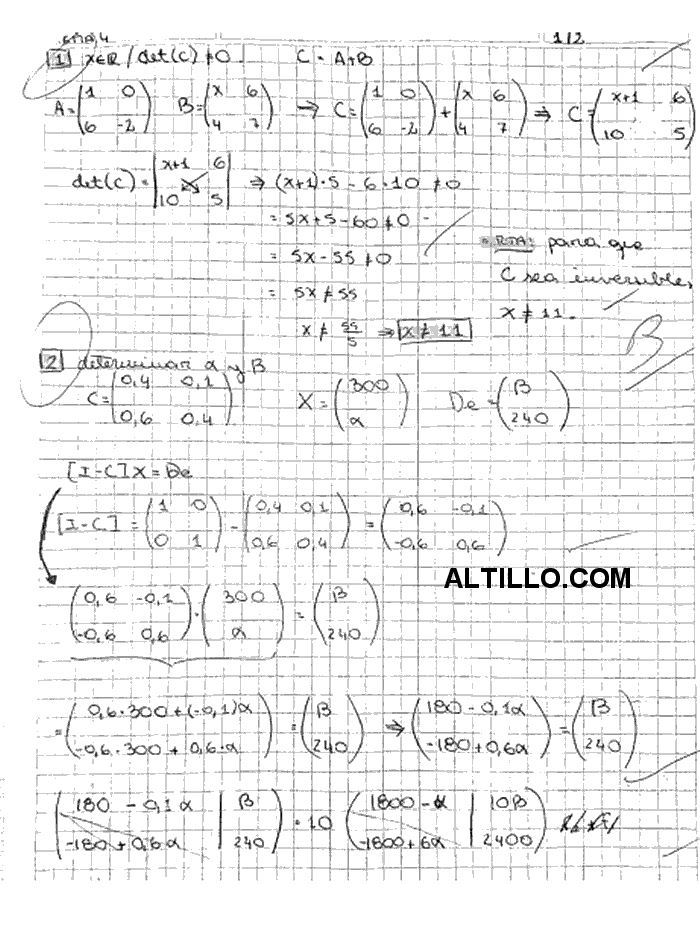 TEMA 4 1/2
1 x∈R / det(C) ≠ 0 C = A+B
A = (1 0; 6 -2) B = (x 6; 4 7) ⇒ C = (1 0; 6 -2) + (x 6; 4 7) ⇒ C = (x+1 6; 10 5)
det(C) = |x+1 6; 10 5| ⇒ (x+1)·5 - 6·10 ≠ 0
= 5x+5-60 ≠ 0
= 5x-55 ≠ 0
= 5x ≠ 55
x ≠ 55/5 ⇒ x ≠ 11
RTA: para que
C sea inversible,
x ≠ 11.
B
2 determinar α y β
C = (0,4 0,1; 0,6 0,4) X = (300; α) De = (β; 240)
[I-C]X = De
[I-C] = (1 0; 0 1) - (0,4 0,1; 0,6 0,4) = (0,6 -0,1; -0,6 0,6)
ALTILLO.COM
(0,6 -0,1; -0,6 0,6) · (300; α) = (β; 240)
= (0,6·300+(-0,1)α; -0,6·300+0,6·α) = (β; 240) ⇒ (180-0,1α; -180+0,6α) = (β; 240)
(180 -0,1α | β; -180+0,6α | 240) · 10 (1800-α | 10β; -1800+6α | 2400)